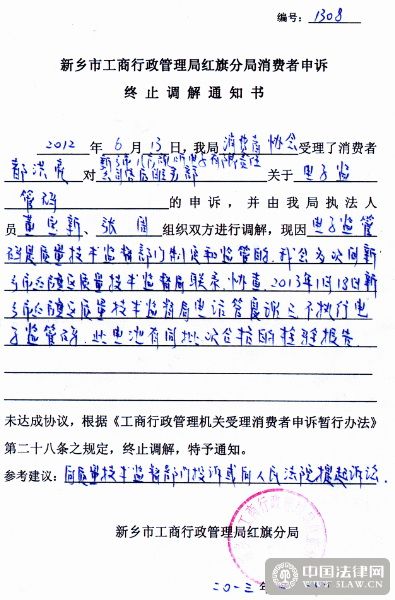 编号：1308
新乡市工商行政管理局红旗分局消费者申诉
终止调解通知书
2012 年 6 月 13 日，我局 消费者协会 受理了消费者
郝洪亮 对 关于 电子监
管码 的申诉，并由我局执法人
员 组织双方进行调解，现因 电子监管
码是质量技术监督部门制定和监管的，我会多次同新
乡市红旗区质量技术监督局联系、协查，2013年1月18日新
乡市红旗区质量技术监督局电话答复该三不执行电
子监管码，此电池有同批次合格的检验报告
未达成协议，根据《工商行政管理机关受理消费者申诉暂行办法》
第二十八条之规定，终止调解，特予通知。
参考建议：向质量技术监督部门投诉或向人民法院提起诉讼。
新乡市工商行政管理局红旗分局
二〇一三年
中国法律网
WWW.5LAW.CN